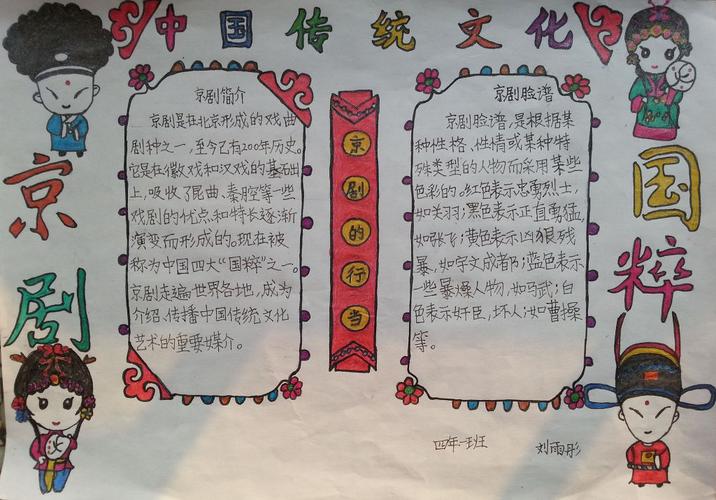 中国传统文化
京剧
国粹
京剧简介
京剧是在北京形成的戏曲
剧种之一,至今已有200年历史。
它是在徽戏和汉戏的基础
上,吸收了昆曲、秦腔等一些
戏剧的优点和特长逐渐
演变而形成的。现在被
称为中国四大“国粹”之一。
京剧走遍世界各地,成为
介绍、传播中国传统文化
艺术的重要媒介。
京剧的行当
京剧脸谱
京剧脸谱,是根据某
种性格、性情或某种特
殊类型的人物而采用某些
色彩的。红色表示忠勇烈士,
如关羽;黑色表示正直勇猛,
如张飞;黄色表示凶狠残
暴,如宇文成都;蓝色表示
一些暴燥人物,如马武;白
色表示奸臣,坏人;如曹操
等。
四年一班 刘雨彤